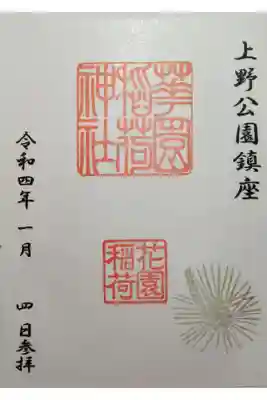 上野公園鎮座
華園
稲荷
神社
花園
稲荷
令和四年一月 四日参拝